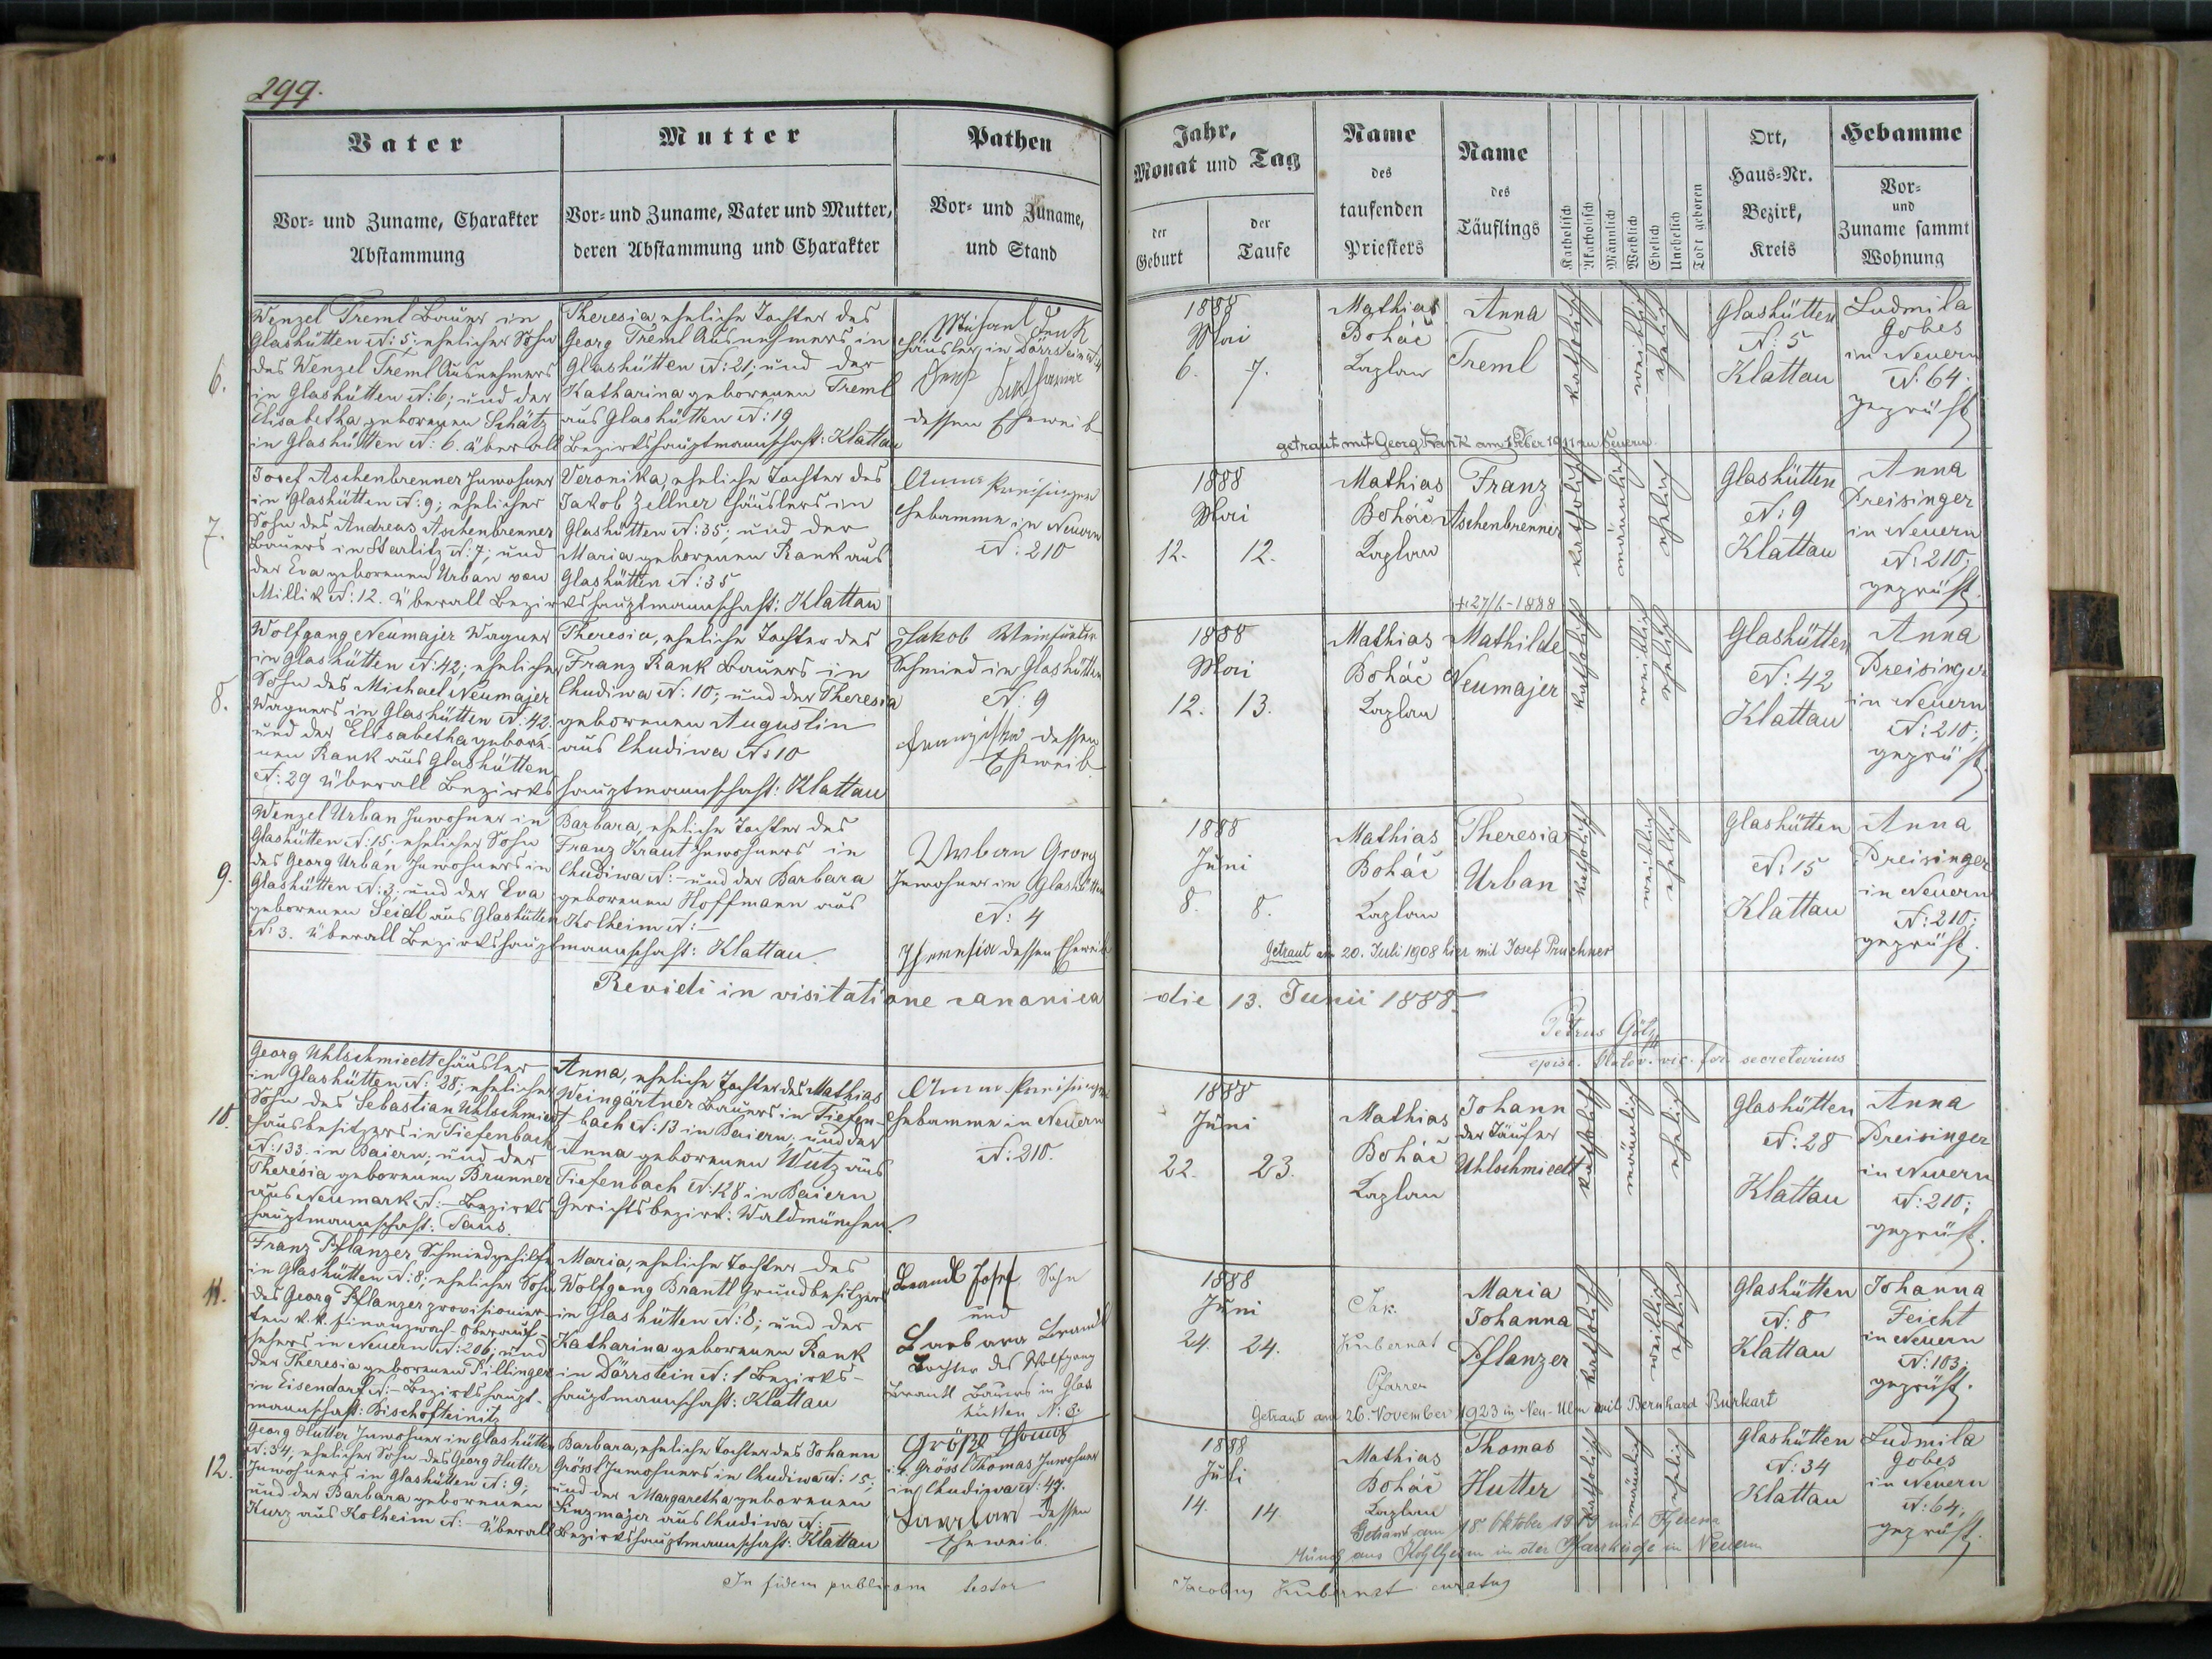 299.
Vater
Mutter
Pathen
Vor- und Zuname, Charakter
Abstammung
Vor- und Zuname, Vater und Mutter,
deren Abstammung und Charakter
Vor- und Zuname,
und Stand
6.
Wenzel Treml Bauer in
Glashütten N: 5; ehelicher Sohn
des Wenzel Treml Ausnehmers
in Glashütten N: 6; und der
Elisabetha geborenen Schätz
in Glashütten N: 6. überall
Theresia, eheliche Tochter des
Georg Treml Ausnehmers in
Glashütten N: 21; und der
Katharina geborenen Treml
aus Glashütten N: 19
Bezirkshauptmannschaft: Klattau
Häusler in Dörrstein
dessen Eheweib
7.
Josef Aschenbrenner Inwohner
in Glashütten N: 9; ehelicher
Sohn des Andreas Aschenbrenner
Bauers in Starlitz N: 7; und
der Eva geborenen Urban von
Millik N: 12. überall Bezirkshauptmannschaft: Klattau
Veronika, eheliche Tochter des
Jakob Zellner Häuslers in
Glashütten N: 35; und der
Maria geborenen Rank aus
Glashütten N: 35
Anna Preisinger
Hebamme in Neuern
N: 210
8.
Wolfgang Neumajer Wagner
in Glashütten N: 42; ehelicher
Sohn des Michael Neumajer
Wagners in Glashütten N: 42.
und der Elisabetha gebore-
nen Rank aus Glashütten
N: 29 überall Bezirkshauptmannschaft: Klattau
Theresia, eheliche Tochter des
Franz Rank Bauers in
Chudiwa N: 10; und der Theresia
geborenen Augustin
aus Chudiwa N: 10
Jakob
Schmied in Glashütten
N: 9
Franziska dessen
Eheweib
9.
Wenzel Urban Inwohner in
Glashütten N: 15; ehelicher Sohn
des Georg Urban Inwohners in
Glashütten N: 3. und der Eva
geborenen Seidl aus Glashütten
N: 3. überall Bezirkshauptmannschaft: Klattau
Barbara, eheliche Tochter des
Franz Kraut Inwohners in
Chudiwa N: - und der Barbara
geborenen Hoffmann aus
Kolheim N: -
Urban Georg
Inwohner in Glashütten
N: 4
Theresia dessen Eheweib
Revidi in visitatione canonica
10.
Georg Uhlschmiedt Häusler
in Glashütten N: 28; ehelicher
Sohn des Sebastian Uhlschmiedt
Hausbesitzers in Tiefenbach
N: 133. in Baiern; und der
Theresia geborenen Brunner
aus Neumark N: - Bezirks-
hauptmannschaft: Taus.
Anna, eheliche Tochter des Mathias
Weingärtner Bauers in Tiefen-
bach N: 13 in Baiern; und der
Anna geborenen Wutz aus
Tiefenbach N: 128 in Baiern
Gerichtsbezirk: Waldmünchen
Anna Preisinger
Hebamme in Neuern
N: 210.
11.
Franz Pflanzer Schmiedgehilfe
in Glashütten N: 8; ehelicher Sohn
des Georg Pflanzer provisionier-
ten k.k. Finanzwach-Oberauf-
sehers in Neuern N: 206; und
der Theresia geborenen Pillinger
in Eisendorf N: - Bezirkshaupt-
mannschaft: Bischofteinitz
Maria, eheliche Tochter des
Wolfgang Brantl Grundbesitzers
in Glashütten N: 8; und der
Katharina geborenen Rank
in Dörrstein N: 1 Bezirks-
hauptmannschaft: Klattau
Brandl Josef Sohn
und
Barbara Brandl
Tochter des Wolfgang
Brantl Bauers in Glas
hütten N: 8.
12.
Georg Hutter Inwohner in Glashütten
N: 34, ehelicher Sohn des Georg Hutter
Inwohners in Glashütten N: 9;
und der Barbara geborenen
Kurz aus Kolheim N: - überall
Barbara, eheliche Tochter des Johann
Grössl Inwohners in Chudiwa N: 15;
und der Margaretha geborenen
aus Chudiwa N: -
Bezirkshauptmannschaft: Klattau
Thomas
Grössl Thomas Inwohner
in Chudiwa N: 47.
Barbara dessen
Eheweib.
In fidem publicam testor
Jahr,
Monat und Tag
der
Geburt
der
Taufe
Name
des
taufenden
Priesters
Name
des
Täuflings
Katholisch
Akatholisch
Männlich
Weiblich
Ehelich
Unehelich
Todt geboren
Ort,
Haus-Nr.
Bezirk,
Kreis
Hebamme
Vor-
und
Zuname sammt
Wohnung
1888
Mai
6. 7.
Mathias
Boháč
Kaplan
Anna
Treml
katholisch
weiblich
ehelich
Glashütten
N: 5
Klattau
Ludmila
Gobes
in Neuern
N: 64.
geprüft
getraut mit Georg Rank am 1911 zu Neuern.
1888
Mai
12. 12.
Mathias
Boháč
Kaplan
Franz
Aschenbrenner
+ 27/6-1888
katholisch
männlich
ehelich
Glashütten
N: 9
Klattau
Anna
Preisinger
in Neuern
N: 210;
geprüft.
1888
Mai
12. 13.
Mathias
Boháč
Kaplan
Mathilde
Neumajer
katholisch
weiblich
ehelich
Glashütten
N: 42
Klattau
Anna
Preisinger
in Neuern
N: 210;
geprüft.
1888
Juni
8. 8.
Mathias
Boháč
Kaplan
Theresia
Urban
katholisch
weiblich
ehelich
Glashütten
N: 15
Klattau
Anna
Preisinger
in Neuern
N: 210;
geprüft.
Getraut am 20. Juli 1908 hier mit Josef Pruchner
die 13. Junii 1888.
Petrus
vic. for. secretarius
1888
Juni
22. 23.
Mathias
Boháč
Kaplan
Johann
der Täufer
Uhlschmiedt
katholisch
männlich
ehelich
Glashütten
N: 28
Klattau
Anna
Preisinger
in Neuern
N: 210;
geprüft.
1888
Juni
24. 24.
Jak.
Kubernat
Pfarrer
Maria
Johanna
Pflanzer
katholisch
weiblich
ehelich
Glashütten
N: 8
Klattau
Johanna
Feicht
in Neuern
N: 103;
geprüft.
Getraut am 26. November 1923 in Neu-Ulm mit Bernhard Burkart
1888
Juli
14. 14.
Mathias
Boháč
Kaplan
Thomas
Hutter
katholisch
männlich
ehelich
Glashütten
N: 34
Klattau
Ludmila
Gobes
in Neuern
N: 64;
geprüft.
Getraut am 18 Oktober mit
aus in der Pfarrkirche in Neuern
Jacobus Kubernat curatus